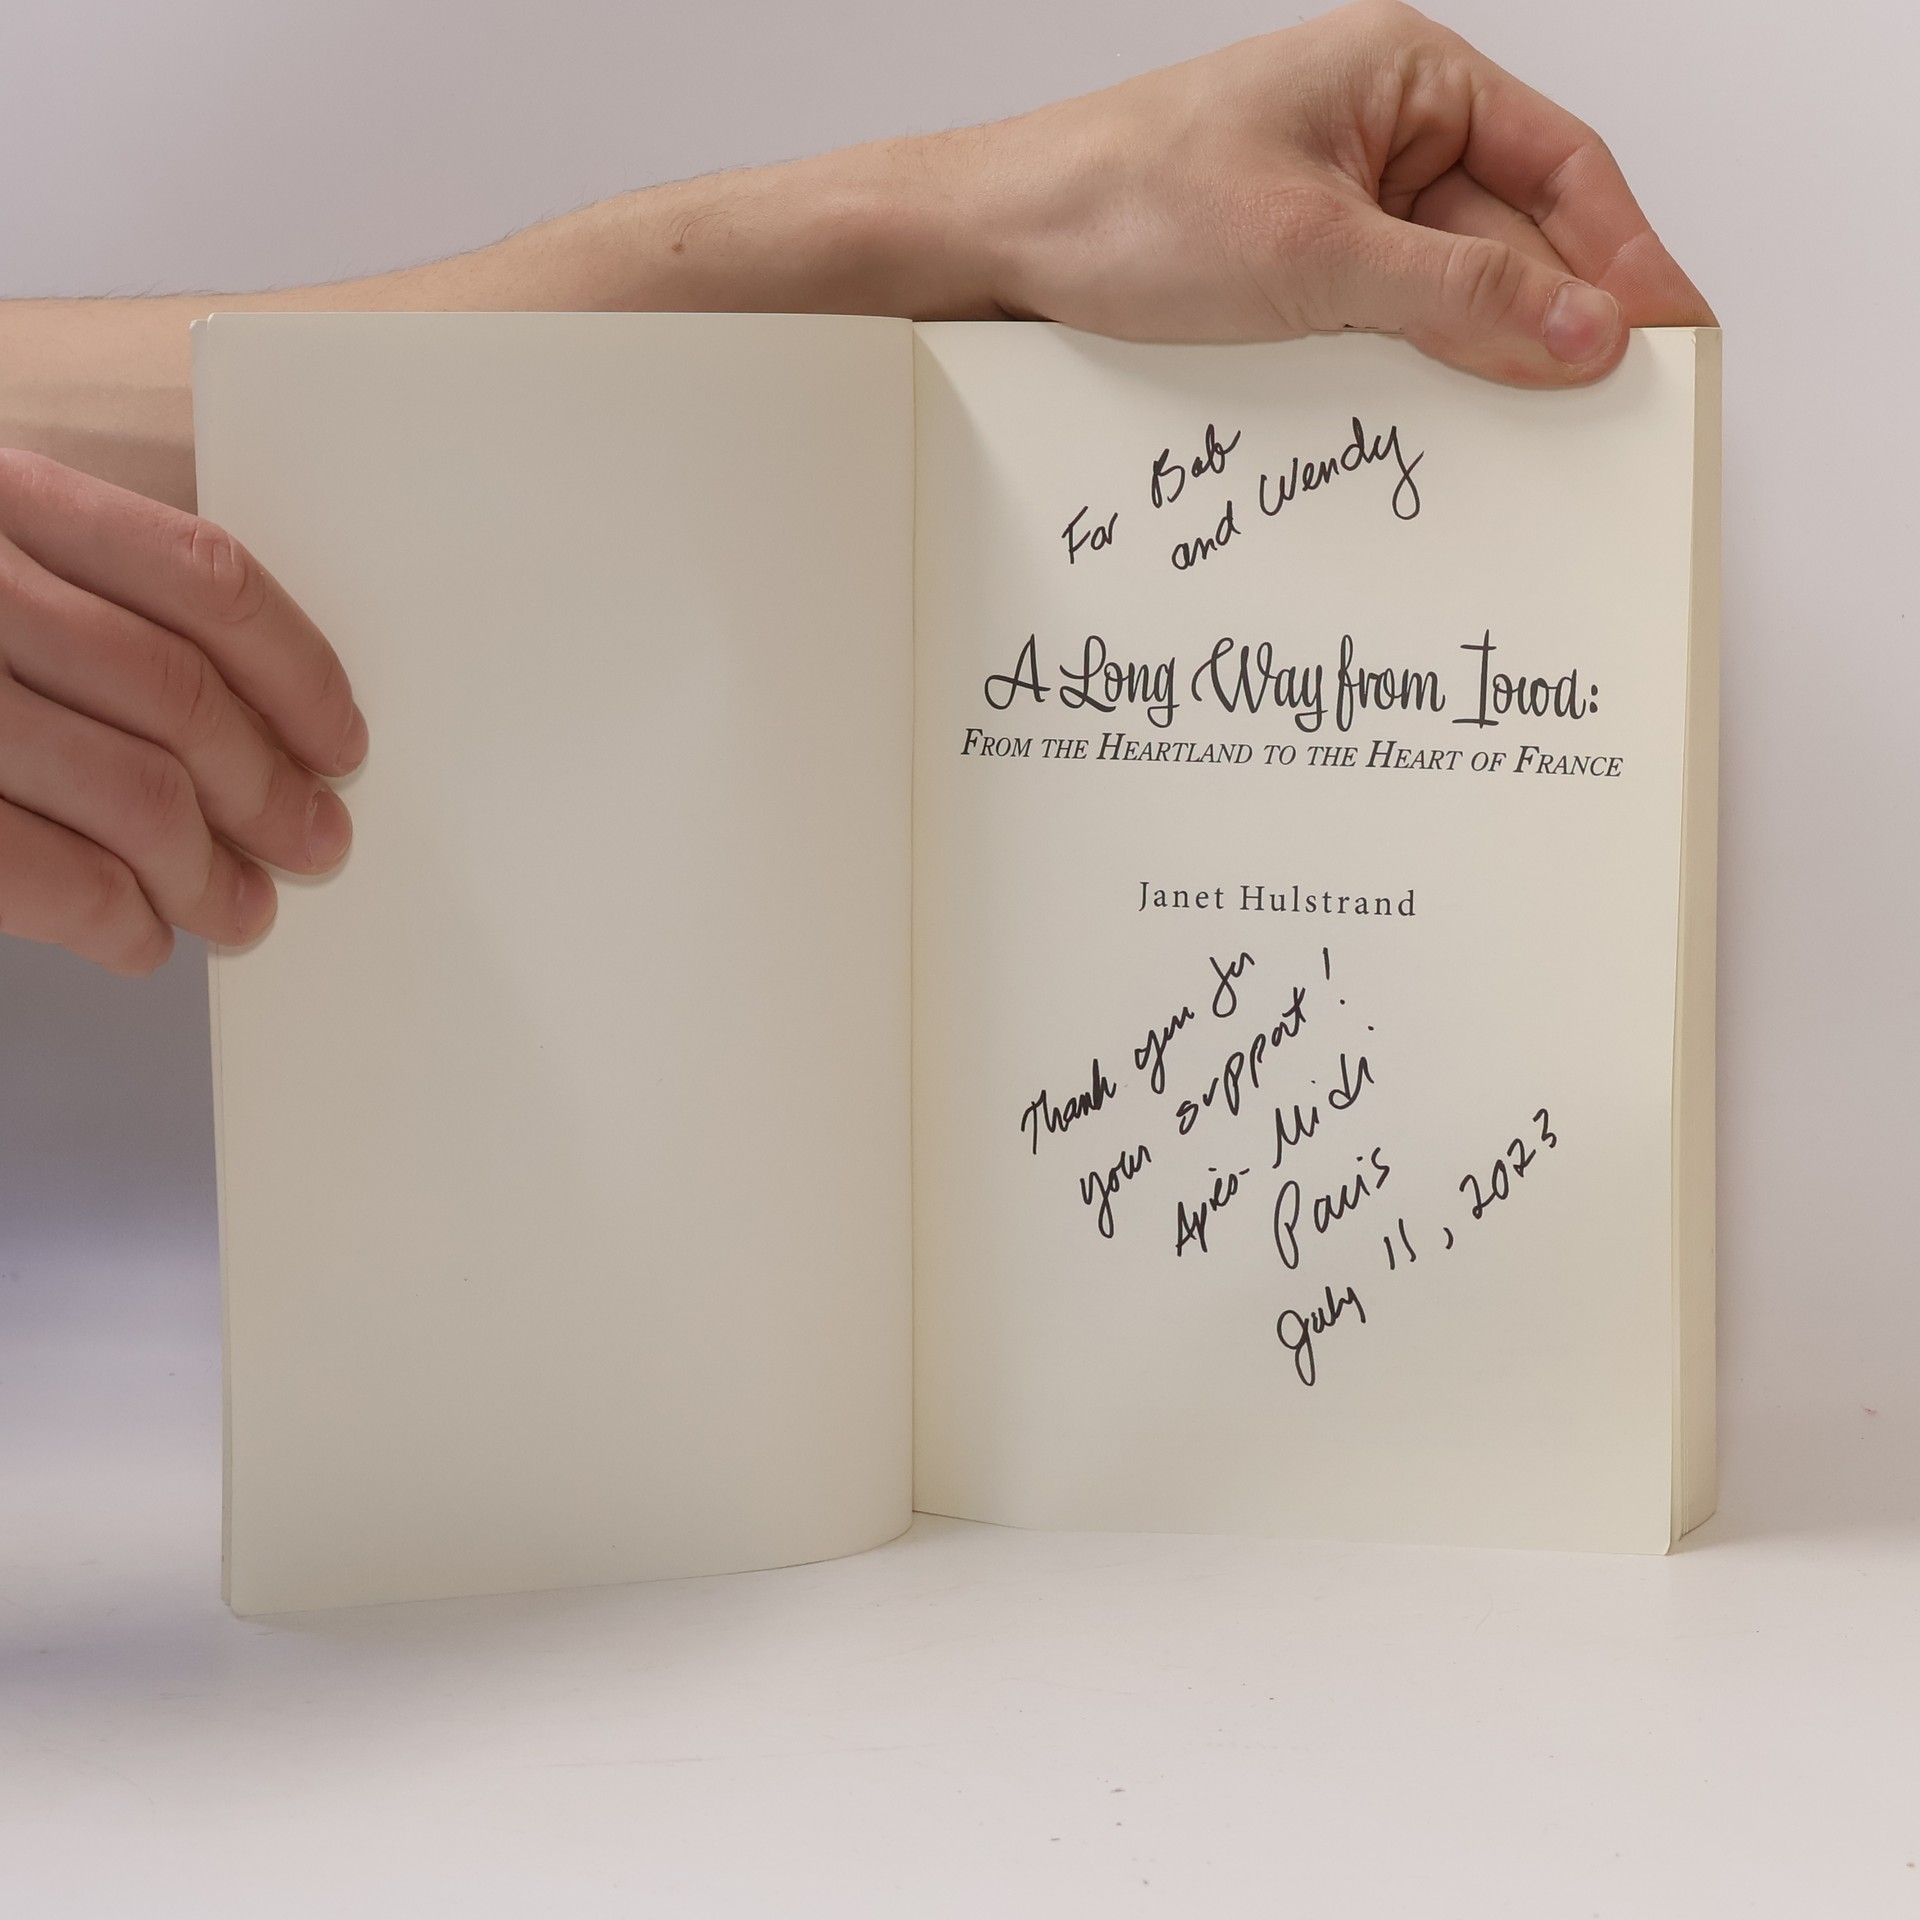 For Bob
and Wendy
A Long Way from Iowa:
FROM THE HEARTLAND TO THE HEART OF FRANCE
Janet Hulstrand
Thank you for
your support!
Après-Midi
Paris
July 11, 2023